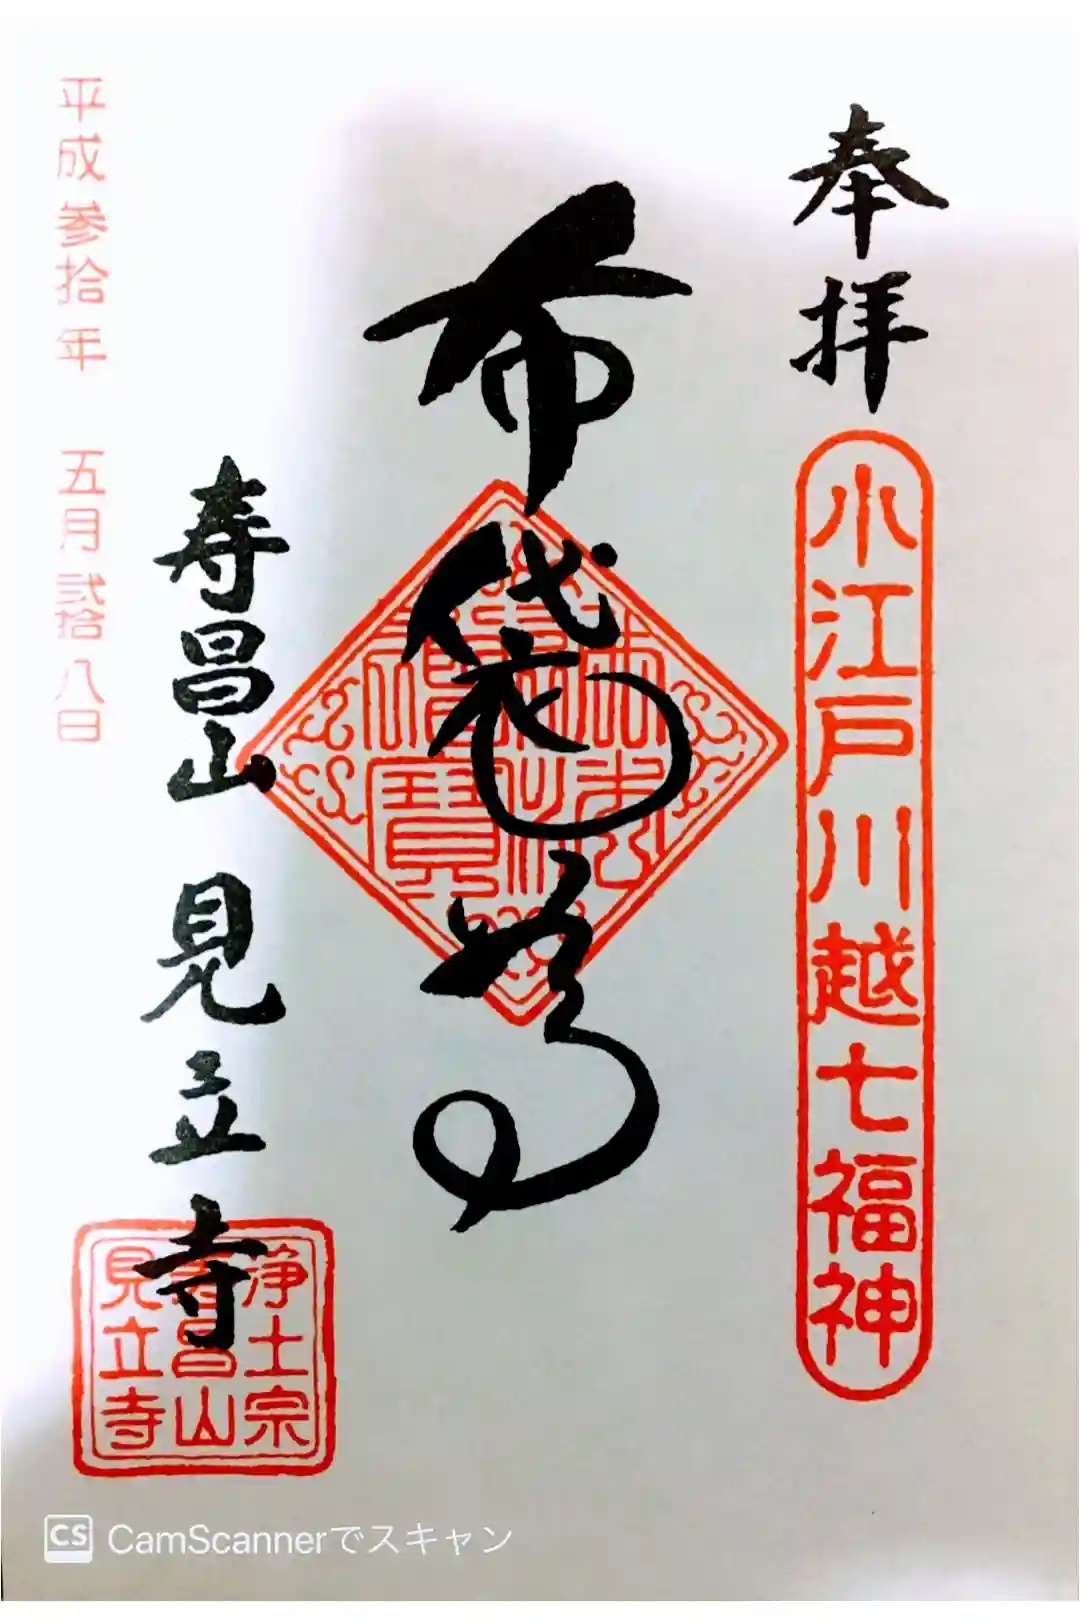 奉拝
小江戸川越七福神
布袋尊
佛法僧寶
寿昌山 見立寺
浄土宗
寿昌山
見立寺
平成参拾年 五月弐拾八日
CS CamScannerでスキャン